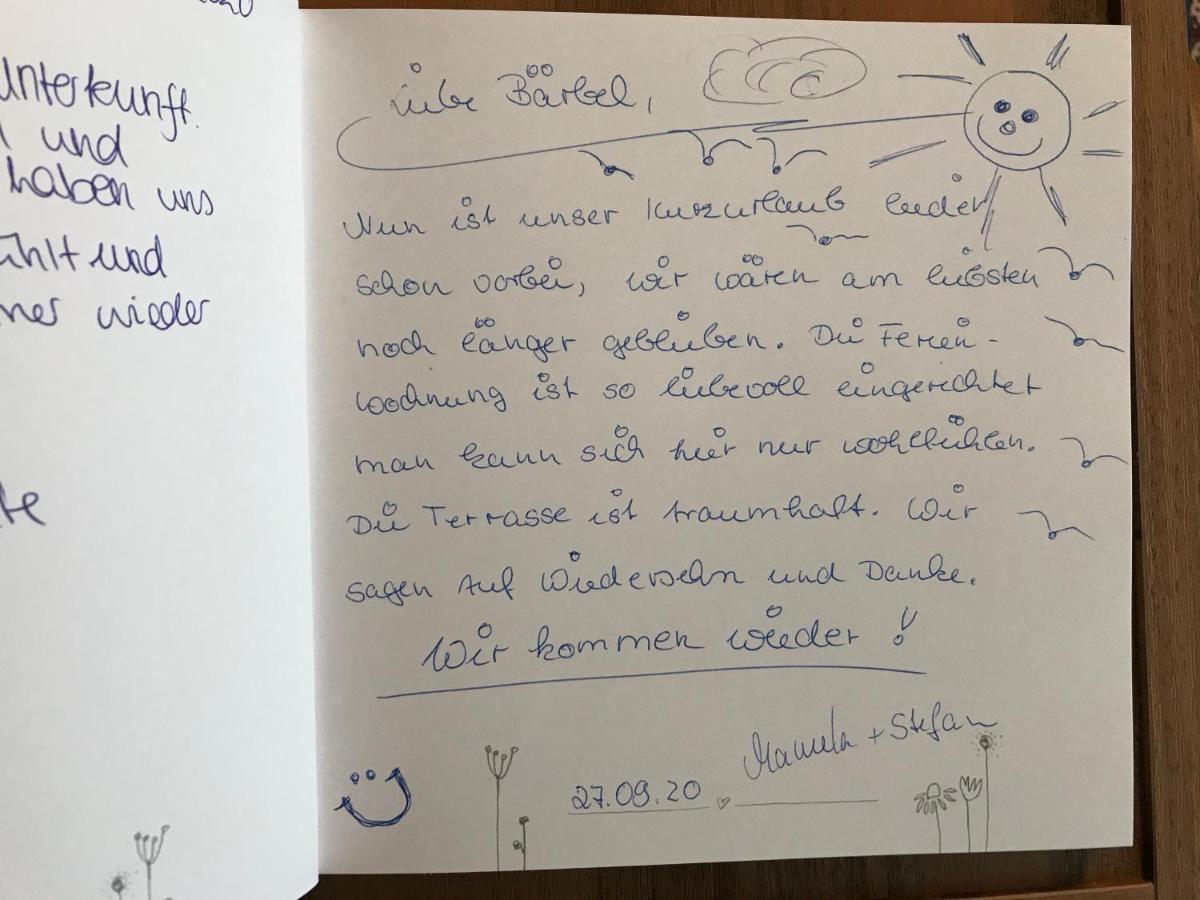 Unterkunft.
und
haben uns
ühlt und
mer wieder
te
Liebe Bärbel,
Nun ist unser Kurzurlaub leider
schon vorbei, wir wären am liebsten
noch länger geblieben. Die Ferien-
wohnung ist so liebevoll eingerichtet
man kann sich hier nur wohlfühlen.
Die Terrasse ist traumhaft. Wir
sagen Auf Wiedersehn und Danke.
Wir kommen wieder!
Manuela + Stefan
27.09.20